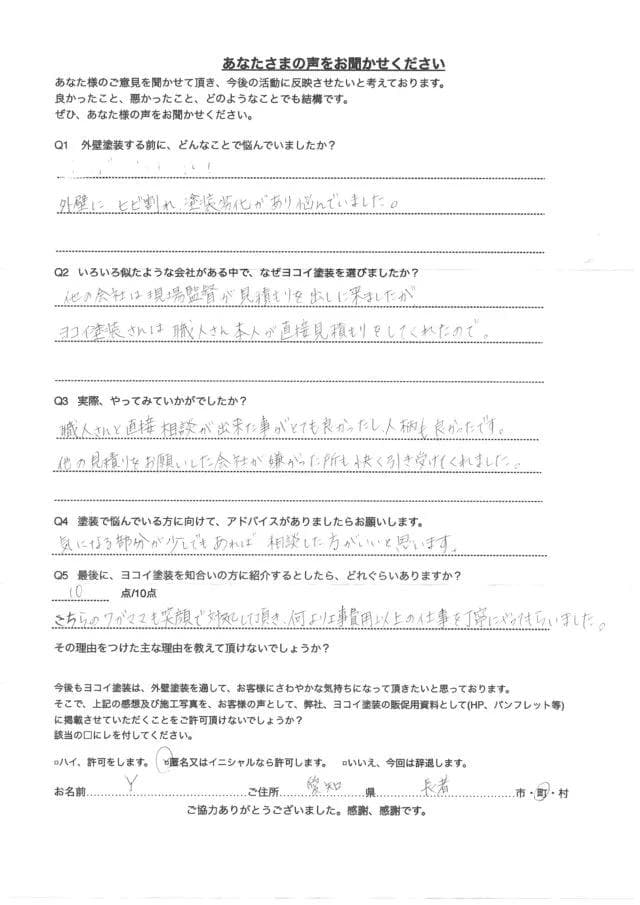 あなたさまの声をお聞かせください
あなた様のご意見を聞かせて頂き、今後の活動に反映させたいと考えております。
良かったこと、悪かったこと、どのようなことでも結構です。
ぜひ、あなた様の声をお聞かせください。
Q1 外壁塗装する前に、どんなことで悩んでいましたか？
外壁に ヒビ割れ、塗装劣化があり悩んでいました。
Q2 いろいろ似たような会社がある中で、なぜヨコイ塗装を選びましたか？
他の会社は現場監督が見積もりを出しに来ましたが
ヨコイ塗装さんは職人さん本人が直接見積もりをしてくれたので。
Q3 実際、やってみていかがでしたか？
職人さんと直接相談が出来た事がとても良かったし、人柄も良かったです。
他の見積りをお願いした会社が嫌がった所も快く引き受けてくれました。
Q4 塗装で悩んでいる方に向けて、アドバイスがありましたらお願いします。
気になる部分が少しでもあれば 相談した方がいいと思います。
Q5 最後に、ヨコイ塗装を知合いの方に紹介するとしたら、どれぐらいありますか？
10 点/10点
こちらのワガママも笑顔で対応して頂き、何より工事費用以上の仕事を丁寧にやってもらいました。
その理由をつけた主な理由を教えて頂けないでしょうか？
今後もヨコイ塗装は、外壁塗装を通して、お客様にさわやかな気持ちになって頂きたいと思っております。
そこで、上記の感想及び施工写真を、お客様の声として、弊社、ヨコイ塗装の販促用資料として(HP、パンフレット等)
に掲載させていただくことをご許可頂けないでしょうか？
該当の□にレを付してください。
□ハイ、許可をします。 □匿名又はイニシャルなら許可します。 □いいえ、今回は辞退します。
お名前 Y ご住所 愛知 県 長者 市・町・村
ご協力ありがとうございました。感謝、感謝です。